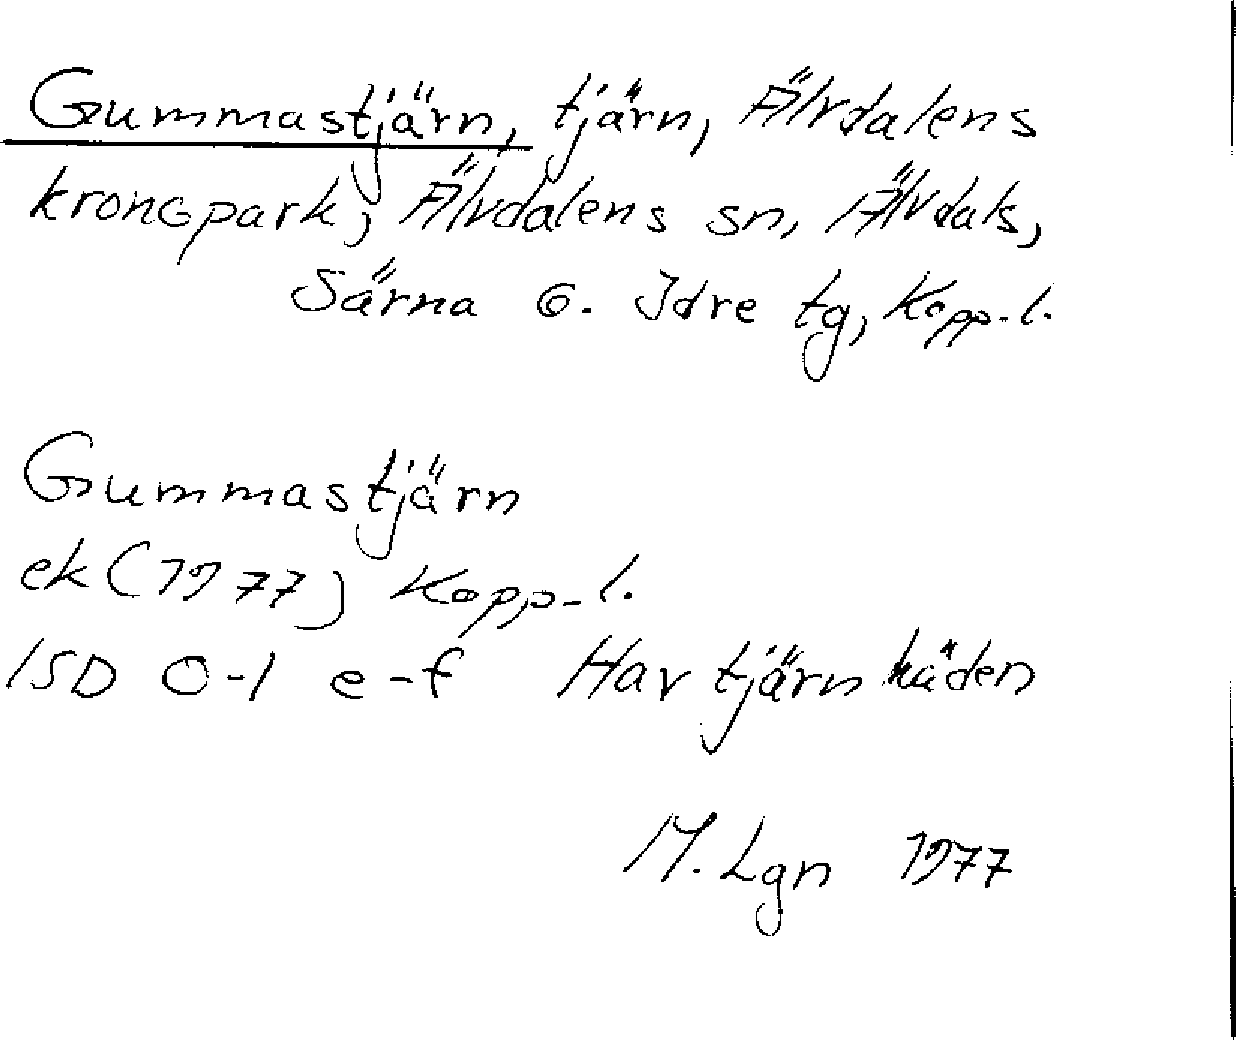 Gummastjärn, tjärn, Älvdalens
kronopark, Älvdalens sn, Älvdals,
Särna o. Idre tg, Kopp-l.
Gummastjärn
ek (1977) Kopp-l.
15D 0-1 e-f Har tjärn
M. Lgn 1977